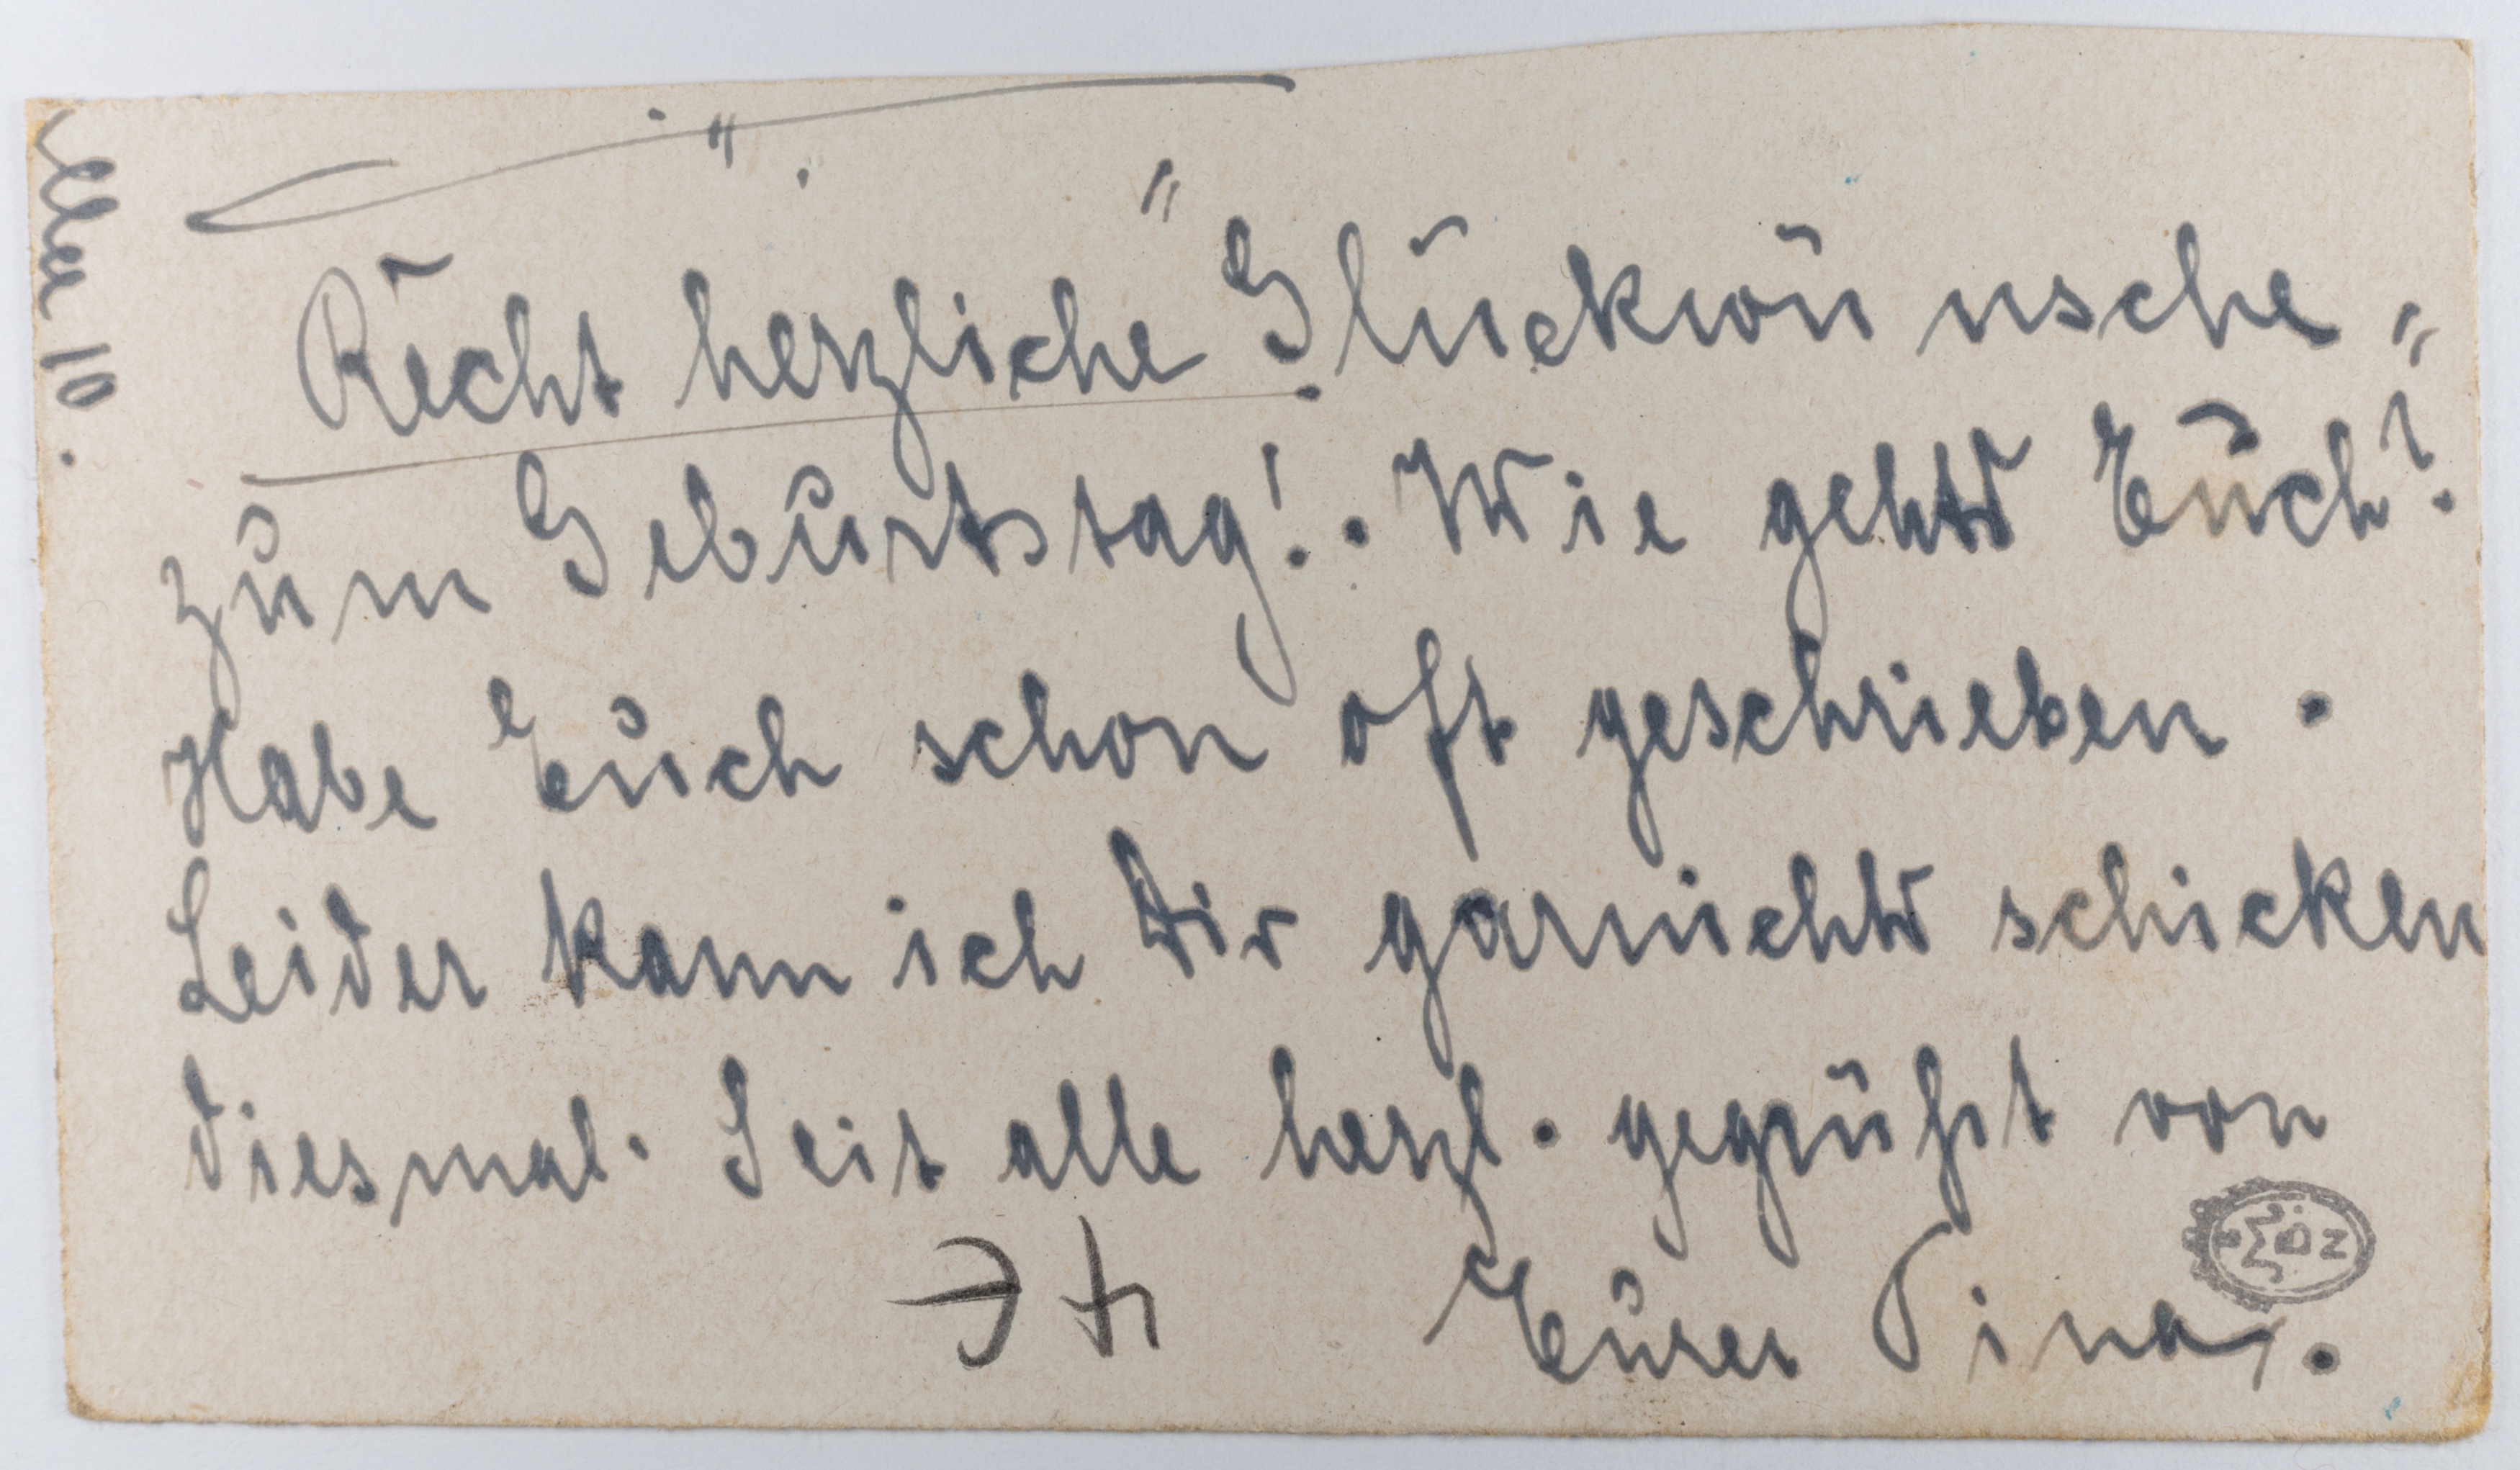 "Recht herzliche Glückwünsche"
zum Geburtstag!. Wie gehts Euch?
Habe Euch schon oft geschrieben.
Leider kann ich Dir garnichts schicken
diesmal. Seit alle herzl. gegrüßt von
Eurer Tina.
10.